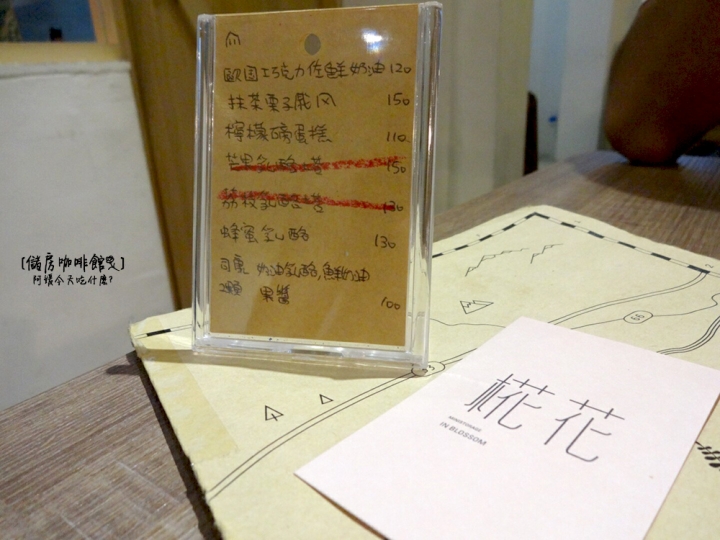 歐園巧克力佐鮮奶油 120
抹茶栗子戚风 150
檸檬磅蛋糕 110
芒果乳酪塔 150
荔枝乳酪塔 130
蜂蜜乳酪 130
司康 奶油乳酪,鮮奶油
2顆 果醬 100
[儲房咖啡館]
阿娘今天吃什麼?
椛花
IN BLOSSOM
65